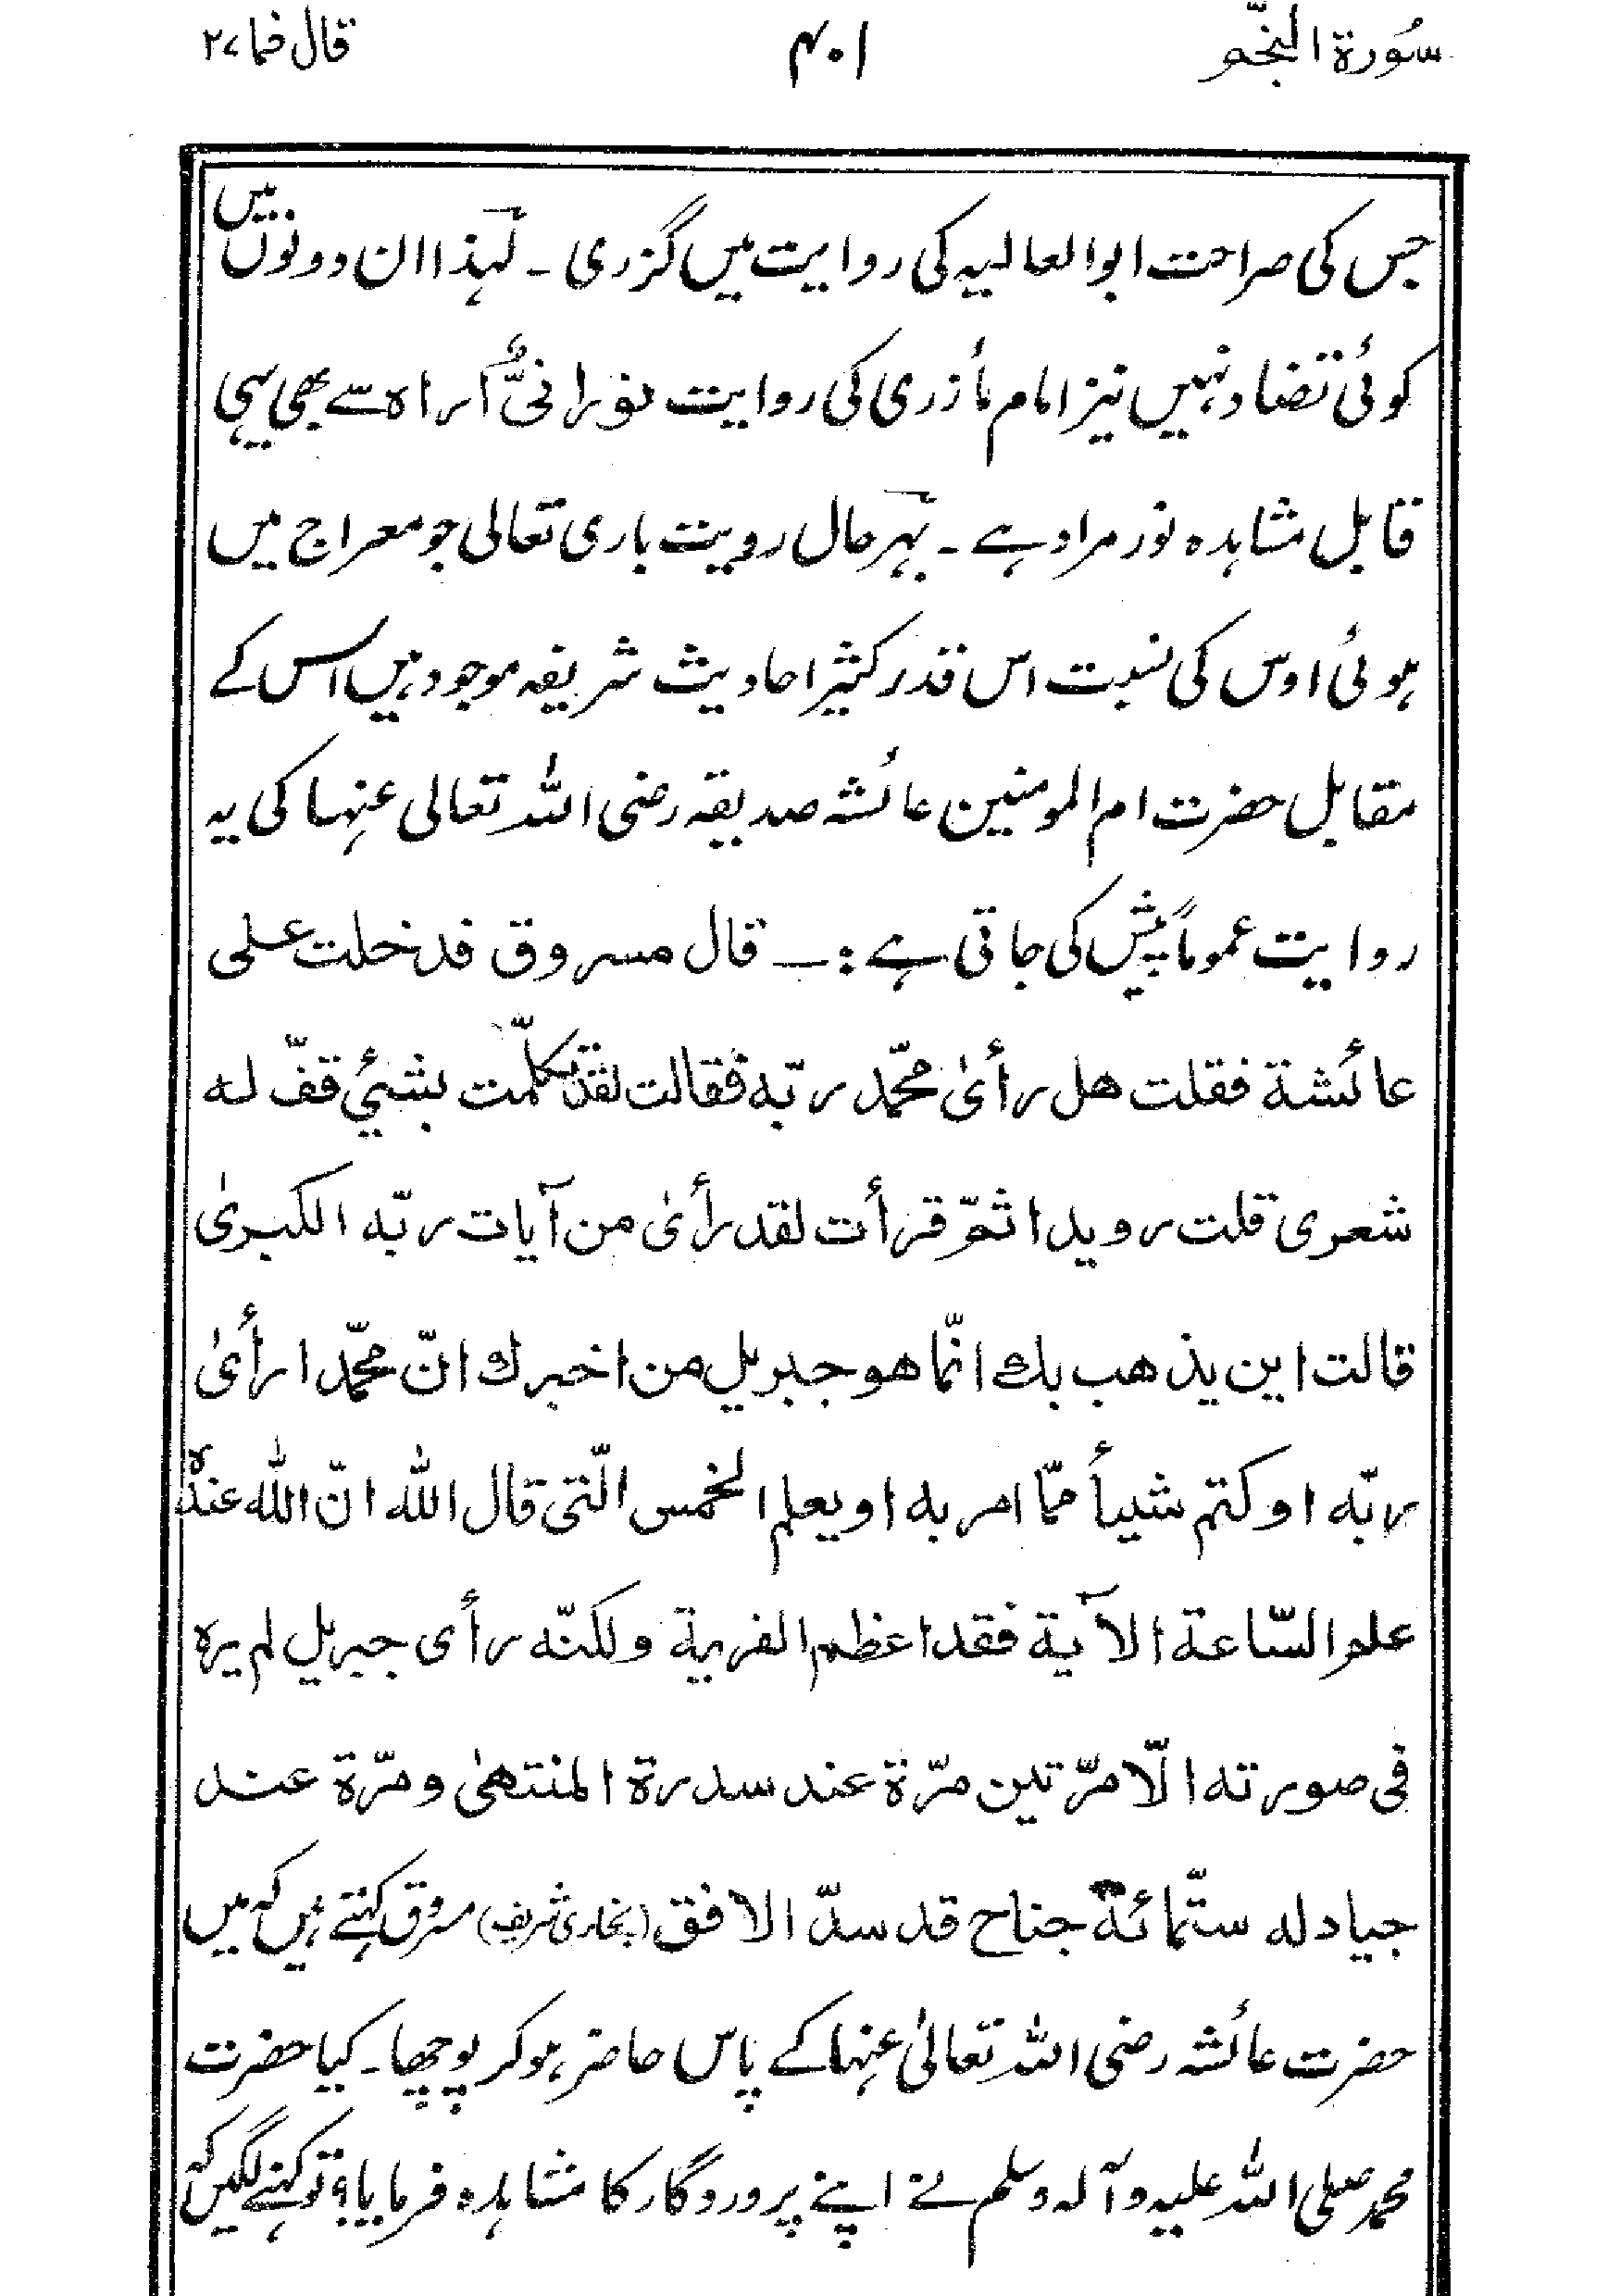 سُورة النجّم ۴۰۱ قال فما ۲۷
جس کی صراحت ابوالعالیہ کی روایت میں گزری ۔ لہٰذا ان دونوں میں
کوئی تضاد نہیں نیز امام مأزری کی روایت نورانیٌّ أراہ سے بھی یہی
قابل مشاہدہ نور مراد ہے ۔ بہرحال رویت باری تعالی جو معراج میں
ہوئی اوس کی نسبت اس قدر کثیر احادیث شریفہ موجود ہیں اس کے
مقابل حضرت ام المومنین عائشہ صدیقہ رضی اللہ تعالی عنہا کی یہ
روایت عموماً پیش کی جاتی ہے :ـــ قال مسروق فدخلت علی
عائشة فقلت هل رأیٰ محمّد ربّه فقالت لقد تکلّمت بشیٔ قفّ له
شعری قلت رویدا ثمّ قرأت لقد رأیٰ من آیات ربّه الکبریٰ
قالت این یذهب بك انّما هو جبریل من اخبرك انّ محمّدا رأیٰ
ربّه او کتم شیأ ممّا امر به او یعلم الخمس الّتی قال اللّٰه انّ اللّٰه عنده
علم السّاعة الآیة فقد اعظم الفریة ولکنّه رأی جبریل لم یره
فی صورته الّا مرّتین مرّة عند سدرة المنتهیٰ ومرّة عند
جیاد له ستّمائة جناح قد سدّ الافق (بخاری شریف) مسروق کہتے ہیں کہ میں
حضرت عائشہ رضی اللہ تعالیٰ عنہا کے پاس حاضر ہوکر پوچھا ۔ کیا حضرت
محمد صلی اللہ علیہ وآلہ وسلم نے اپنے پروردگار کا مشاہدہ فرمایا؟ تو کہنے لگیں کہ